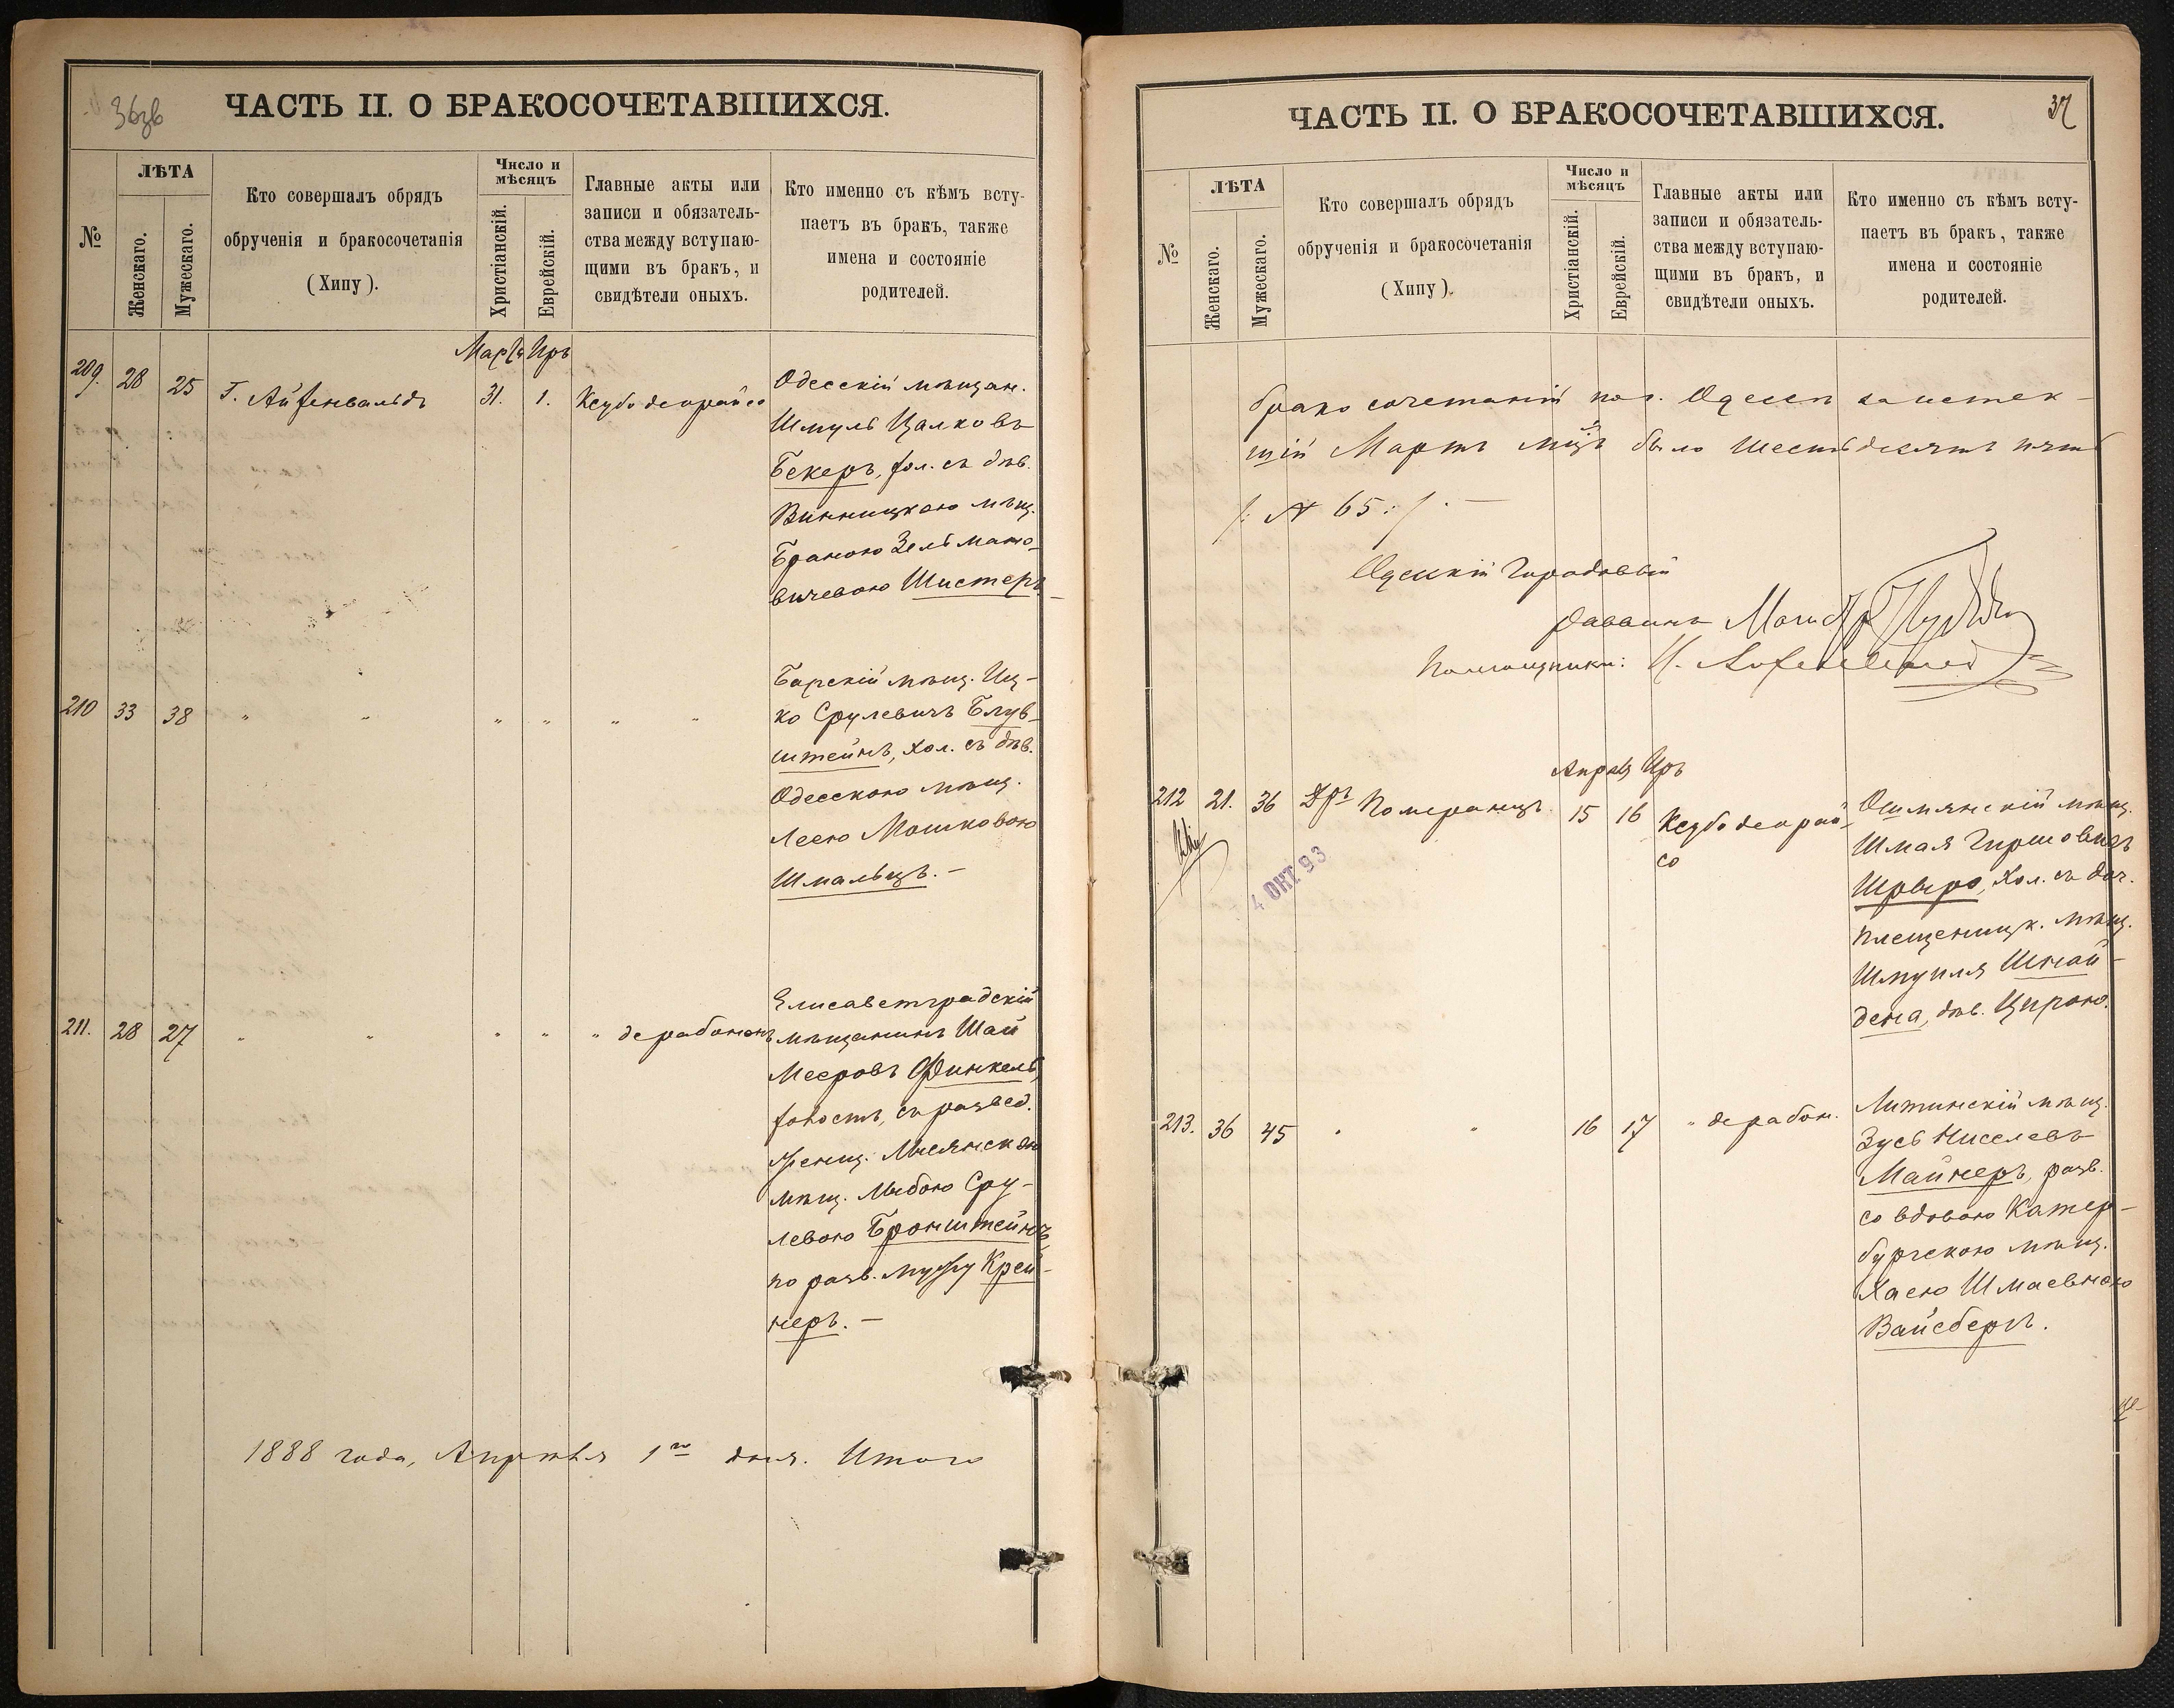 36зв
ЧАСТЬ II. О БРАКОСОЧЕТАВШИХСЯ.
№
ЛѢТА
Женскаго.
Мужескаго.
Кто совершалъ обрядъ
обрученія и бракосочетанія
(Хипу).
Число и
мѣсяцъ
Христіанскій.
Еврейскій.
Главные акты или
записи и обязатель-
ства между вступаю-
щими въ бракъ, и
свидѣтели оныхъ.
Кто именно съ кѣмъ всту-
паетъ въ бракъ, также
имена и состояніе
родителей.
Мартъ Иръ
209. 28 25 Г. Айзенвальдъ 31. 1. Ксубо деорайсо
Одесскій мѣщан.
Шмуль Цалковъ
Бекеръ, хол. съ дѣв.
Винницкою мѣщ.
Браною Зельмано-
вичевою Шистеръ
210 33 38 " " " " " "
Барскій мѣщ. Иц-
ко Срулевичъ Блув-
штейнъ, хол. съ дѣв.
Одесскою мѣщ.
Леею Мошковою
Шмальцъ. —
211. 28 27 " " " " " дерабонанъ
Елисаветградскій
мѣщанинъ Шай
Мееровъ Финкель,
холост, съ развед.
мѣщ. Любою Сру-
левою Бронштейнъ,
по разв. мужу Крей-
неръ. —
1888 года, Апрѣля 1го дня. Итого
37
ЧАСТЬ II. О БРАКОСОЧЕТАВШИХСЯ.
№
ЛѢТА
Женскаго.
Мужескаго.
Кто совершалъ обрядъ
обрученія и бракосочетанія
(Хипу).
Число и
мѣсяцъ
Христіанскій.
Еврейскій.
Главные акты или
записи и обязатель-
ства между вступаю-
щими въ бракъ, и
свидѣтели оныхъ.
Кто именно съ кѣмъ всту-
паетъ въ бракъ, также
имена и состояніе
родителей.
бракосочетаній по г. Одессѣ за истек-
шій Мартъ мцъ было шестьдесятъ пять
/: № 65 :/. —
Одесскій Городовой
Раввинъ
Помощникъ:
Апрѣль Иръ
212 21. 36 Дръ Померанцъ 15 16 Ксубо деорай-
со
4 ОКТ. 93
Ошмянскій мѣщ.
Шмая Гиршовичъ
Шапиро, хол. съ доч.
Плещеницк. мѣщ.
Шмуиля Шнай-
дена, дѣв. Цирою.
213. 36 45 " " 16 17 " дерабон.
Литинскій мѣщ.
Зусь Киселевъ
Майнеръ, разв.
со вдовою Катер-
бургскою мѣщ.
Хаею Шмаевною
Вайсбергъ.